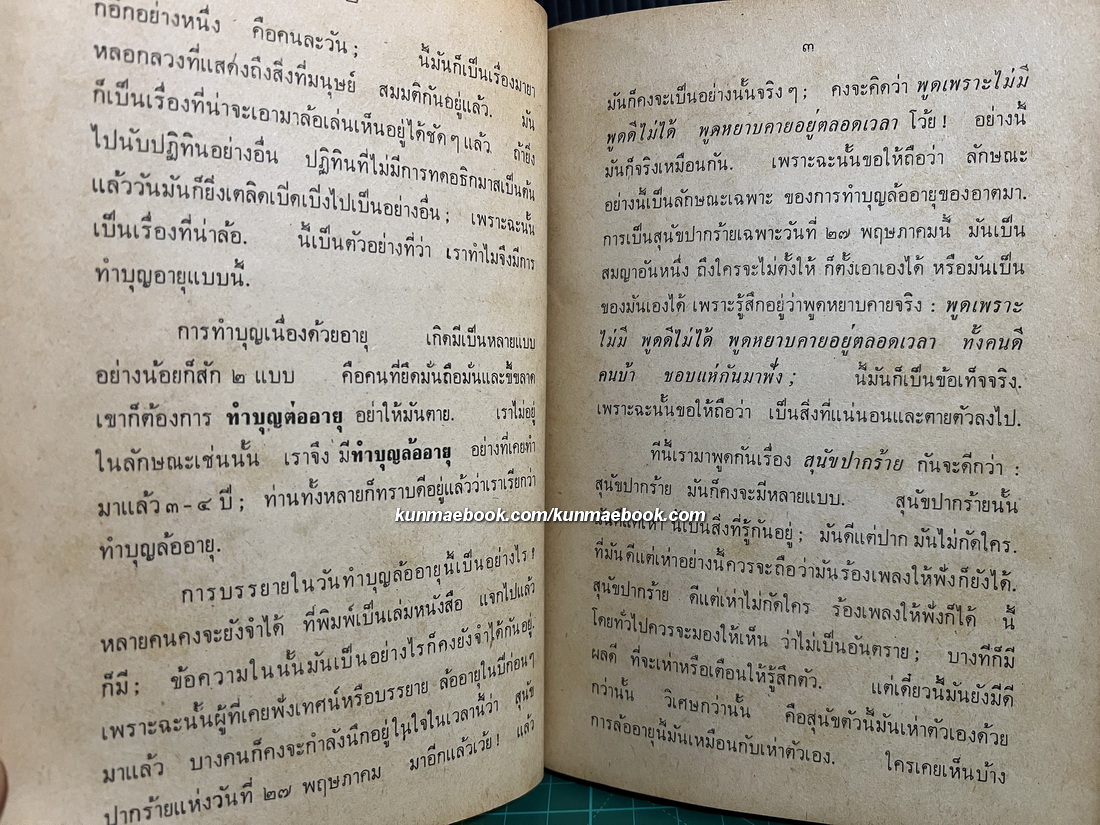 กอีกอย่างหนึ่ง คือคนละวัน; นี้มันก็เป็นเรื่องมายา
หลอกลวงที่แสดงถึงสิ่งที่มนุษย์ สมมติกันอยู่แล้ว. มัน
ก็เป็นเรื่องที่น่าจะเอามาล้อเล่นเห็นอยู่ได้ชัดๆแล้ว. ถ้ายิ่ง
ไปนับปฏิทินอย่างอื่น ปฏิทินที่ไม่มีการทดอธิกมาสเป็นต้น
แล้ววันมันก็ยิ่งเตลิดเปิดเปิงไปเป็นอย่างอื่น; เพราะฉะนั้น
เป็นเรื่องที่น่าล้อ. นี้เป็นตัวอย่างที่ว่า เราทำไมจึงมีการ
ทำบุญอายุแบบนี้.
การทำบุญเนื่องด้วยอายุ เกิดมีเป็นหลายแบบ
อย่างน้อยก็สัก ๒ แบบ คือคนที่ยึดมั่นถือมั่นและขี้ขลาด
เขาก็ต้องการ ทำบุญต่ออายุ อย่าให้มันตาย. เราไม่อยู่
ในลักษณะเช่นนั้น เราจึง มีทำบุญล้ออายุ อย่างที่เคยทำ
มาแล้ว ๓ - ๔ ปี; ท่านทั้งหลายก็ทราบดีอยู่แล้วว่าเราเรียกว่า
ทำบุญล้ออายุ.
การบรรยายในวันทำบุญล้ออายุนี้เป็นอย่างไร!
หลายคนคงจะยังจำได้ ที่พิมพ์เป็นเล่มหนังสือ แจกไปแล้ว
ก็มี; ข้อความในนั้นมันเป็นอย่างไรก็คงยังจำได้กันอยู่.
เพราะฉะนั้นผู้ที่เคยฟังเทศน์หรือบรรยาย ล้ออายุในปีก่อนๆ
มาแล้ว บางคนก็คงจะกำลังนึกอยู่ในใจในเวลานี้ว่า สุนัข
ปากร้ายแห่งวันที่ ๒๗ พฤษภาคม มาอีกแล้วเว้ย! แล้ว
๓
มันก็คงจะเป็นอย่างนั้นจริงๆ; คงจะคิดว่า พูดเพราะไม่มี
พูดดีไม่ได้ พูดหยาบคายอยู่ตลอดเวลา โว้ย! อย่างนี้
มันก็จริงเหมือนกัน. เพราะฉะนั้นขอให้ถือว่า ลักษณะ
อย่างนี้เป็นลักษณะเฉพาะ ของการทำบุญล้ออายุของอาตมา.
การเป็นสุนัขปากร้ายเฉพาะวันที่ ๒๗ พฤษภาคมนี้ มันเป็น
สมญาอันหนึ่ง ถึงใครจะไม่ตั้งให้ ก็ตั้งเอาเองได้ หรือมันเป็น
ของมันเองได้ เพราะรู้สึกอยู่ว่าพูดหยาบคายจริง : พูดเพราะ
ไม่มี พูดดีไม่ได้ พูดหยาบคายอยู่ตลอดเวลา ทั้งคนดี
คนบ้า ชอบแห่กันมาฟัง; นี้มันก็เป็นข้อเท็จจริง.
เพราะฉะนั้นขอให้ถือว่า เป็นสิ่งที่แน่นอนและตายตัวลงไป.
ทีนี้เรามาพูดกันเรื่อง สุนัขปากร้าย กันจะดีกว่า :
สุนัขปากร้าย มันก็คงจะมีหลายแบบ. สุนัขปากร้ายนั้น
kunmaebook.com/kunmaebook.com
นี้เป็นสิ่งที่รู้กันอยู่; มันดีแต่ปาก มันไม่กัดใคร.
ที่มันดีแต่เห่าอย่างนี้ควรจะถือว่ามันร้องเพลงให้ฟังก็ยังได้.
สุนัขปากร้าย ดีแต่เห่าไม่กัดใคร ร้องเพลงให้ฟังก็ได้ นี้
โดยทั่วไปควรจะมองให้เห็น ว่าไม่เป็นอันตราย; บางทีก็มี
ผลดี ที่จะเห่าหรือเตือนให้รู้สึกตัว. แต่เดี๋ยวนี้มันยังมีดี
กว่านั้น วิเศษกว่านั้น คือสุนัขตัวนี้มันเห่าตัวเองด้วย
การล้ออายุนี้มันเหมือนกับเห่าตัวเอง. ใครเคยเห็นบ้าง